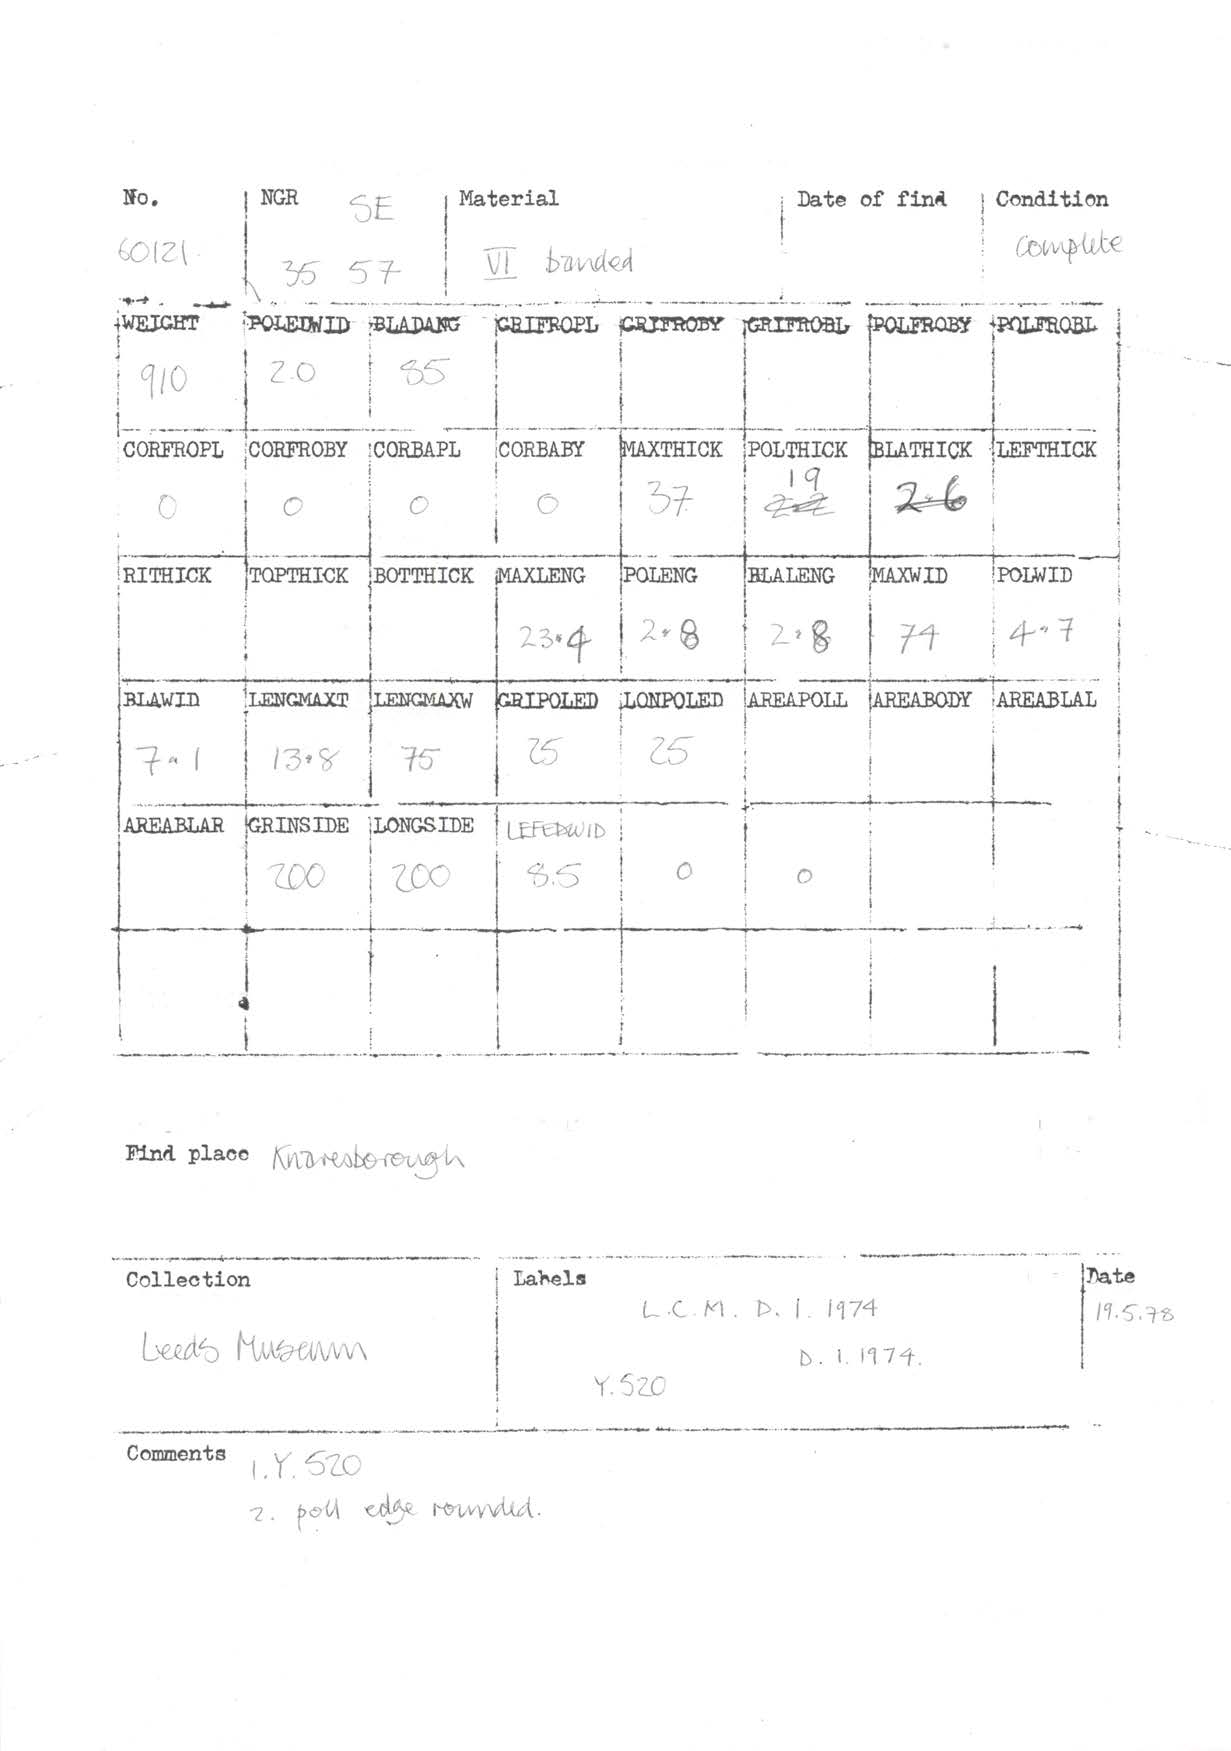 No. NGR SE Material Date of find Condition
60121. 35 57 VI banded complete
WEIGHT POLEDWID BLADANG GRIFROPL GRIFROBY GRIFROBL POLFROBY POLFROBL
910 2.0 85
CORFROPL CORFROBY CORBAPL CORBABY MAXTHICK POLTHICK BLATHICK LEFTHICK
19
0 0 0 0 37 2.2 2.6
RITHICK TOPTHICK BOTTHICK MAXLENG POLENG BLALENG MAXWID POLWID
23.4 2.8 2.8 74 4.7
BLAWID LENGMAXT LENGMAXW GRIPOLED LONPOLED AREAPOLL AREABODY AREABLAL
7.1 13.8 75 25 25
AREABLAR GRINSIDE LONGSIDE LEFEDWID
200 200 8.5 0 0
Find place Knaresborough
Collection Labels Date
L.C.M. D.1.1974 19.5.78
Leeds Museum D.1.1974.
Y.520
Comments 1. Y. 520
2. poll edge rounded.